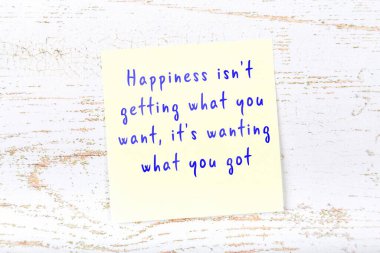 Happiness isn't
getting what you
want, it's wanting
what you got